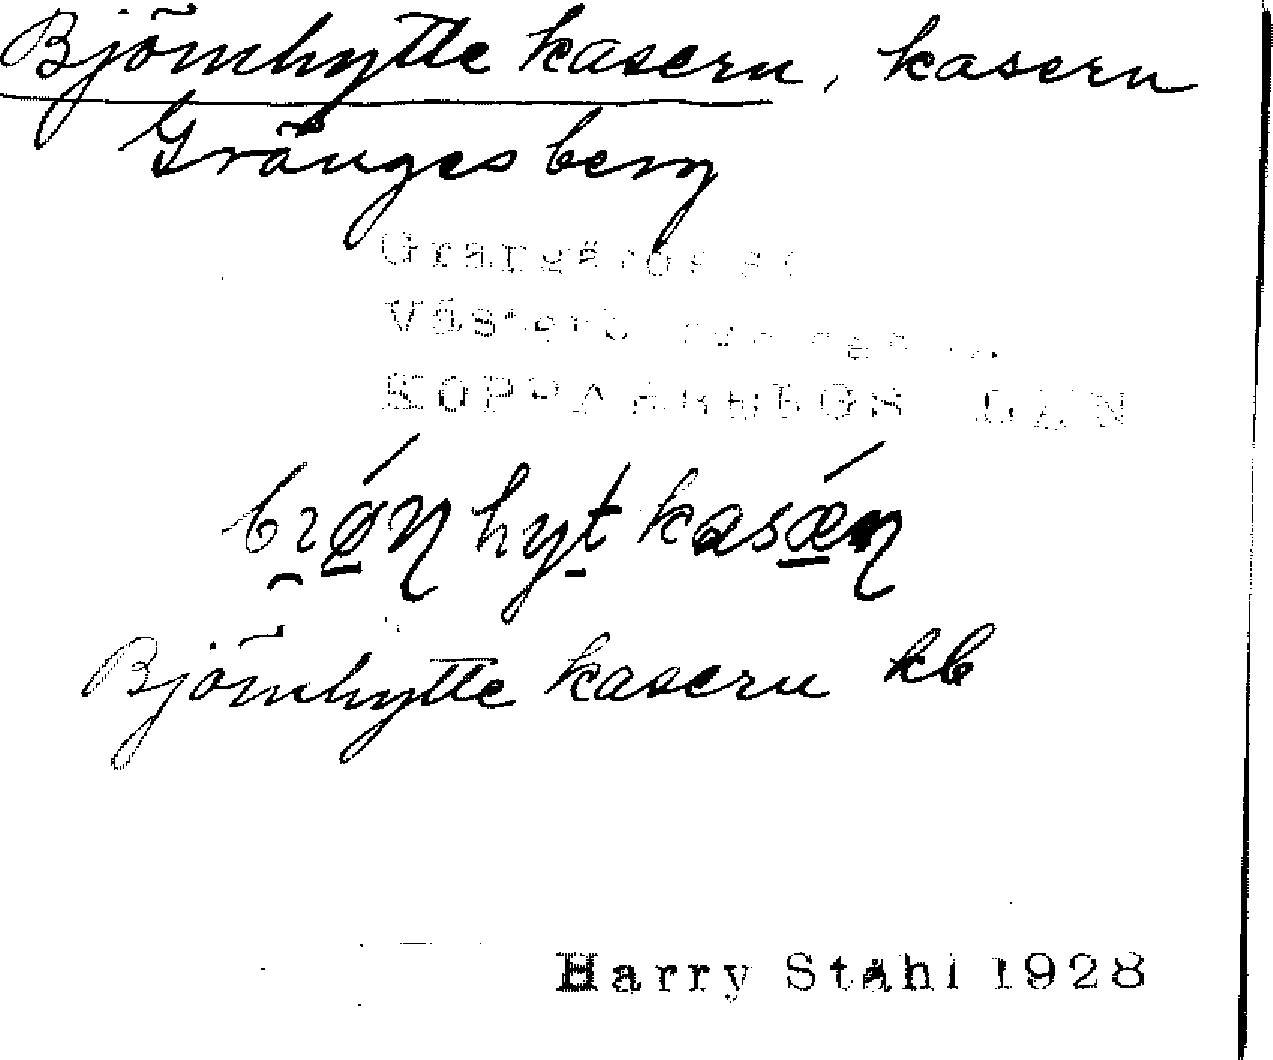 Björnhytte kasern, kasern
Grängesberg
Grangärdes
Västerb
KOPPARBERGS LÄN
hyt
Björnhytte kasern kb
Harry Ståhl 1928